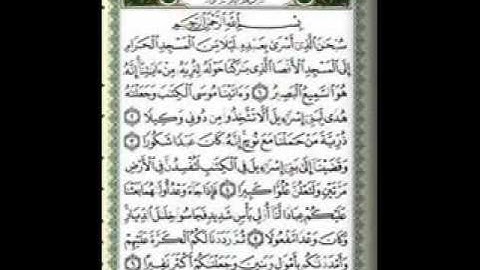 بِسْمِ ٱللَّهِ ٱلرَّحْمَٰنِ ٱلرَّحِيمِ
سُبْحَٰنَ ٱلَّذِىٓ أَسْرَىٰ بِعَبْدِهِۦ لَيْلًا مِّنَ ٱلْمَسْجِدِ ٱلْحَرَامِ
إِلَى ٱلْمَسْجِدِ ٱلْأَقْصَا ٱلَّذِى بَٰرَكْنَا حَوْلَهُۥ لِنُرِيَهُۥ مِنْ ءَايَٰتِنَآ إِنَّهُۥ
هُوَ ٱلسَّمِيعُ ٱلْبَصِيرُ ١ وَءَاتَيْنَا مُوسَى ٱلْكِتَٰبَ وَجَعَلْنَٰهُ
هُدًى لِّبَنِىٓ إِسْرَٰٓءِيلَ أَلَّا تَتَّخِذُوا۟ مِن دُونِى وَكِيلًا ٢
ذُرِّيَّةَ مَنْ حَمَلْنَا مَعَ نُوحٍ إِنَّهُۥ كَانَ عَبْدًا شَكُورًا ٣
وَقَضَيْنَآ إِلَىٰ بَنِىٓ إِسْرَٰٓءِيلَ فِى ٱلْكِتَٰبِ لَتُفْسِدُنَّ فِى ٱلْأَرْضِ
مَرَّتَيْنِ وَلَتَعْلُنَّ عُلُوًّا كَبِيرًا ٤ فَإِذَا جَآءَ وَعْدُ أُولَىٰهُمَا بَعَثْنَا
عَلَيْكُمْ عِبَادًا لَّنَآ أُو۟لِى بَأْسٍ شَدِيدٍ فَجَاسُوا۟ خِلَٰلَ ٱلدِّيَارِ
وَكَانَ وَعْدًا مَّفْعُولًا ٥ ثُمَّ رَدَدْنَا لَكُمُ ٱلْكَرَّةَ عَلَيْهِمْ
وَأَمْدَدْنَٰكُم بِأَمْوَٰلٍ وَبَنِينَ وَجَعَلْنَٰكُمْ أَكْثَرَ نَفِيرًا ٦